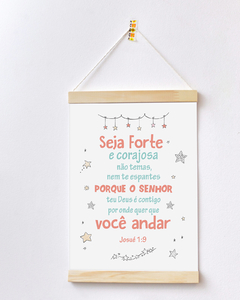 Seja Forte
e corajosa
não temas,
nem te espantes
PORQUE O SENHOR
teu Deus é contigo
por onde quer que
você andar
Josué 1:9